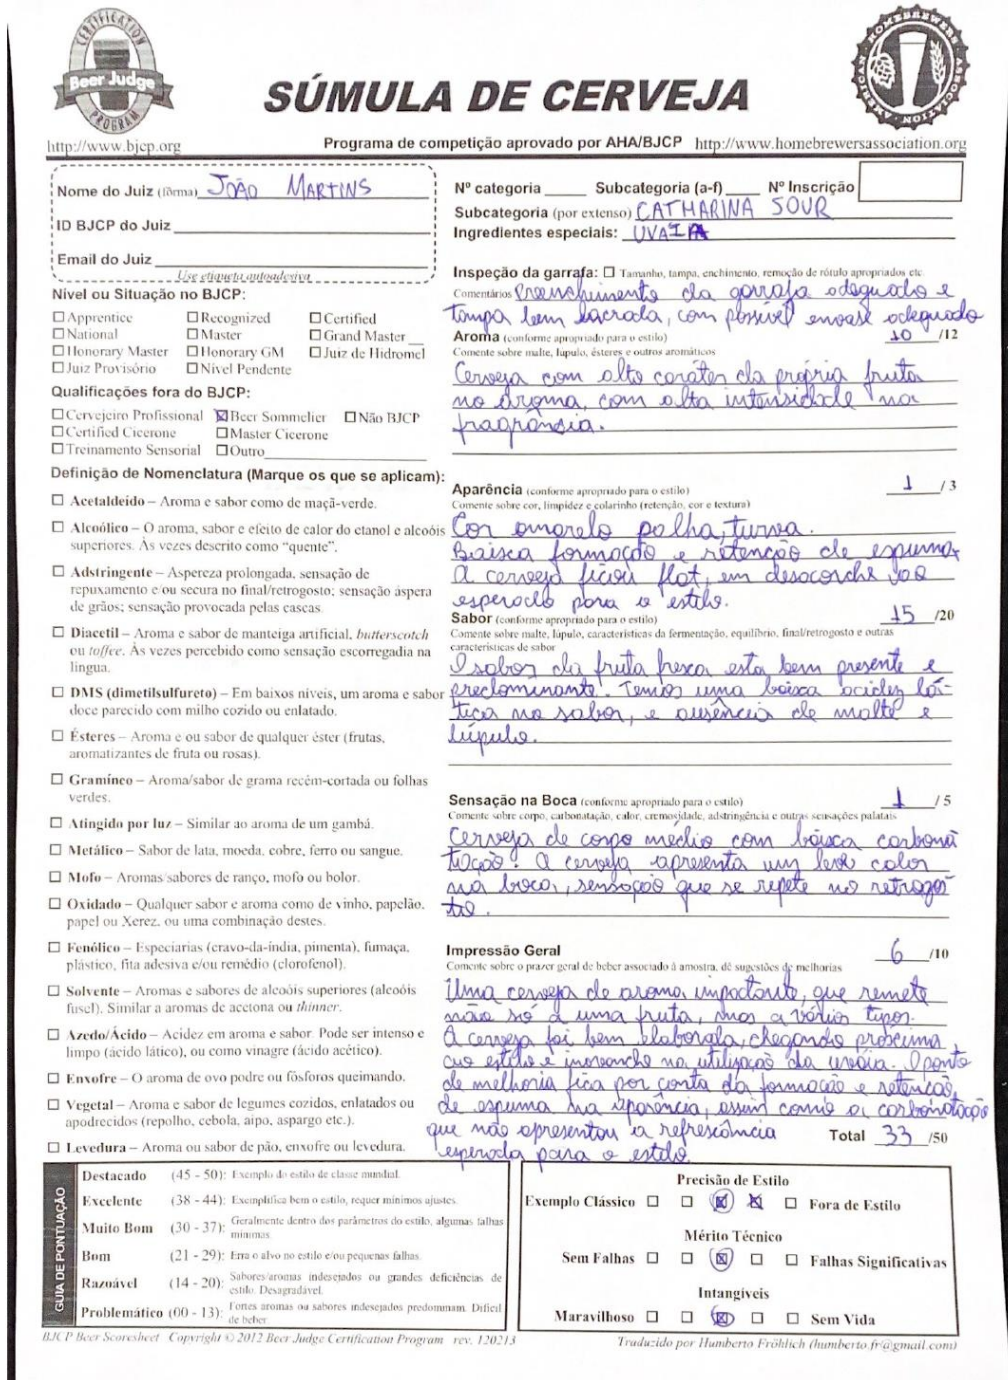 CERTIFICATION
Beer Judge
PROGRAM
AMERICAN HOMEBREWERS ASSOCIATION
SÚMULA DE CERVEJA
http://www.bjcp.org
Programa de competição aprovado por AHA/BJCP http://www.homebrewersassociation.org
Nome do Juiz (fôrma) JOÃO MARTINS
ID BJCP do Juiz
Email do Juiz
Use etiqueta autoadesiva
Nível ou Situação no BJCP:
☐ Apprentice ☐ Recognized ☐ Certified
☐ National ☐ Master ☐ Grand Master
☐ Honorary Master ☐ Honorary GM ☐ Juiz de Hidromel
☐ Juiz Provisório ☐ Nivel Pendente
Qualificações fora do BJCP:
☐ Cervejeiro Profissional ☒ Beer Sommelier ☐ Não BJCP
☐ Certified Cicerone ☐ Master Cicerone
☐ Treinamento Sensorial ☐ Outro
Definição de Nomenclatura (Marque os que se aplicam):
☐ Acetaldeido – Aroma e sabor como de maçã-verde.
☐ Alcoólico – O aroma, sabor e efeito de calor do etanol e alcoóis
superiores. Às vezes descrito como “quente”.
☐ Adstringente – Aspereza prolongada, sensação de
repuxamento e/ou secura no final/retrogosto; sensação áspera
de grãos; sensação provocada pelas cascas.
☐ Diacetil – Aroma e sabor de manteiga artificial, butterscotch
ou toffee. Às vezes percebido como sensação escorregadia na
lingua.
☐ DMS (dimetilsulfureto) – Em baixos níveis, um aroma e sabor
doce parecido com milho cozido ou enlatado.
☐ Ésteres – Aroma e ou sabor de qualquer éster (frutas,
aromatizantes de fruta ou rosas).
☐ Gramíneo – Aroma/sabor de grama recém-cortada ou folhas
verdes.
☐ Atingido por luz – Similar ao aroma de um gambá.
☐ Metálico – Sabor de lata, moeda, cobre, ferro ou sangue.
☐ Mofo – Aromas sabores de ranço, mofo ou bolor.
☐ Oxidado – Qualquer sabor e aroma como de vinho, papelão,
papel ou Xerez, ou uma combinação destes.
☐ Fenólico – Especiarias (cravo-da-índia, pimenta), fumaça,
plástico, fita adesiva e/ou remédio (clorofenol).
☐ Solvente – Aromas e sabores de alcoóis superiores (alcoóis
fusel). Similar a aromas de acetona ou thinner.
☐ Azedo/Ácido – Acidez em aroma e sabor. Pode ser intenso e
limpo (ácido lático), ou como vinagre (ácido acético).
☐ Enxofre – O aroma de ovo podre ou fósforos queimando.
☐ Vegetal – Aroma e sabor de legumes cozidos, enlatados ou
apodrecidos (repolho, cebola, aipo, aspargo etc.).
☐ Levedura – Aroma ou sabor de pão, enxofre ou levedura.
Nº categoria Subcategoria (a-f) Nº Inscrição
Subcategoria (por extenso) CATHARINA SOUR
Ingredientes especiais: UVAIA
Inspeção da garrafa: ☐ Tamanho, tampa, enchimento, remoção de rótulo apropriados etc
Comentários Preenchimento da garrafa adequado e
tampa bem lacrada, com possível envase adequado
Aroma (conforme apropriado para o estilo) 10 /12
Comente sobre malte, lúpulo, ésteres e outros aromáticos
Cerveja com alto caráter da própria fruta
no aroma, com alta intensidade na
fragrância.
Aparência (conforme apropriado para o estilo) 1 / 3
Comente sobre cor, limpidez e colarinho (retenção, cor e textura)
Cor amarelo palha, turva.
Baixa formação e retenção de espuma.
A cerveja ficou flat, em desacordo ao
esperado para o estilo.
Sabor (conforme apropriado para o estilo) 15 /20
Comente sobre malte, lúpulo, características da fermentação, equilíbrio, final/retrogosto e outras
características de sabor
O sabor da fruta fresca esta bem presente e
predominante. Temos uma baixa acidez lá-
tica no sabor, e ausência de malte e
lúpulo.
Sensação na Boca (conforme apropriado para o estilo) 1 / 5
Comente sobre corpo, carbonatação, calor, cremosidade, adstringência e outras sensações palatais
Cerveja de corpo médio com baixa carbona
tação. A cerveja apresenta um leve calor
na boca, sensação que se repete no retrogos
to.
Impressão Geral 6 /10
Comente sobre o prazer geral de beber associado à amostra, dê sugestões de melhorias
Uma cerveja de aroma impactante, que remete
não só a uma fruta, mas a vários tipos.
A cerveja foi bem elaborada, chegando próxima
ao estilo e inovando na utilização da uvaia. O ponto
de melhoria fica por conta da formação e retenção
de espuma na aparência, assim como a carbonatação
que não apresentou a refrescância
esperada para o estilo.
Total 33 /50
GUIA DE PONTUAÇÃO
Destacado (45 - 50): Exemplo do estilo de classe mundial.
Excelente (38 - 44): Exemplifica bem o estilo, requer mínimos ajustes.
Muito Bom (30 - 37): Geralmente dentro dos parâmetros do estilo, algumas falhas
mínimas.
Bom (21 - 29): Erra o alvo no estilo e/ou pequenas falhas.
Razoável (14 - 20): Sabores/aromas indesejados ou grandes deficiências de
estilo. Desagradável.
Problemático (00 - 13): Fortes aromas ou sabores indesejados predominam. Difícil
de beber
Precisão de Estilo
Exemplo Clássico ☐ ☐ ☒ ☒ ☐ Fora de Estilo
Mérito Técnico
Sem Falhas ☐ ☐ ☒ ☐ ☐ Falhas Significativas
Intangíveis
Maravilhoso ☐ ☐ ☒ ☐ ☐ Sem Vida
BJCP Beer Scoresheet Copyright © 2012 Beer Judge Certification Program rev. 120213
Traduzido por Humberto Fröhlich (humberto.fr@gmail.com)